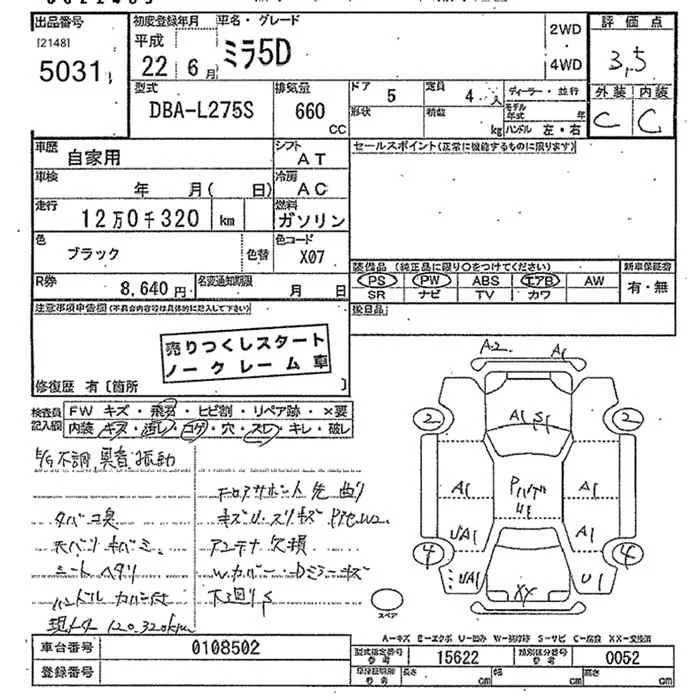 出品番号
[2148]
5031
初度登録年月
平成
22年 6月
車名・グレード
ミラ5D
2WD
・
4WD
評価点
3.5
外装 内装
C C
型式
DBA-L275S
排気量
660
CC
ドア 5
定員 4人
形状
積載
kg
ディーラー・並行
モデル年式 年
ハンドル 左・右
車歴
自家用
シフト
AT
セールスポイント(正常に機能するものに限ります)
車検
年 月( 日)
冷房
AC
走行
12万0千320 km
燃料
ガソリン
色
ブラック
色替
色コード
X07
R券
8,640円
名変通知期限
月 日
装備品 (純正品に限り○をつけてください)
PS PW ABS エアB AW
SR ナビ TV カワ
新車保証書
有・無
後日品
注意事項申告欄(不具合内容等は具体的に記入して下さい)
売りつくしスタート
ノークレーム車
修復歴 有〔箇所 〕
検査員
記入欄
FW キズ・飛石・ヒビ割・リペア跡・×要
内装 キズ・汚レ・コゲ・穴・スレ・キレ・破レ
不調, 異音 振動
タバコ臭
フロアサポート先曲り
天バリ キバミ
アンテナ欠損
シート ヘタリ
下廻りS
現メータ 120,320km
A2 A1
2 2
A1 S1
A1 A1
A1
4 4
U1
XX
スペア
A-キズ E-エクボ U-凹み W-補修跡 S-サビ C-腐食 XX-交換済
車台番号
0108502
登録番号
型式指定番号
参考
15622
類別区分番号
参考
0052
車検証明書
参考
長さ cm
幅 cm
高さ cm